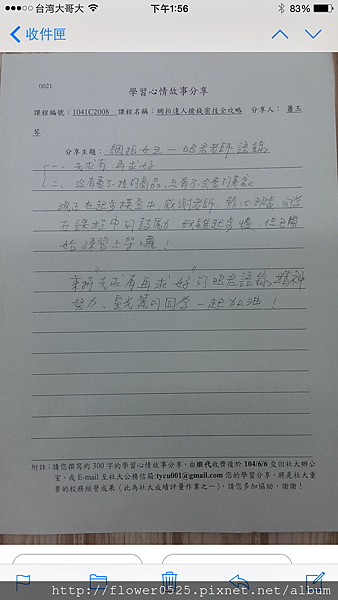 台灣大哥大 下午1:56 83%
收件匣
0021
學習心情故事分享
課程編號：1041C2008 課程名稱：網拍達人搶錢密技全攻略 分享人： 蕭玉
琴
分享主題： 網拍女王一昭君老師語錄
一、先求有 再求好
二、沒有賣不掉的商品,只有不會賣的賣家
現正在起步摸索中 感謝老師
在課堂中的鼓勵 我雖起步慢 但已開
始練習上架囉！
秉持"先求有再求好"的昭君語錄精神
努力、 的同學一起加油！
附註：請您撰寫約 300 字的學習心情故事分享，由班代收齊後於 104/6/6 交回社大辦公
室，或 E-mail 至社大公務信箱:tycu001@gmail.com 您的學習分享，將是社大重
要的校務經營成果（此為社大成績評量作業之一），請您多加協助，謝謝！
http://flower0525.pixnet.net/album